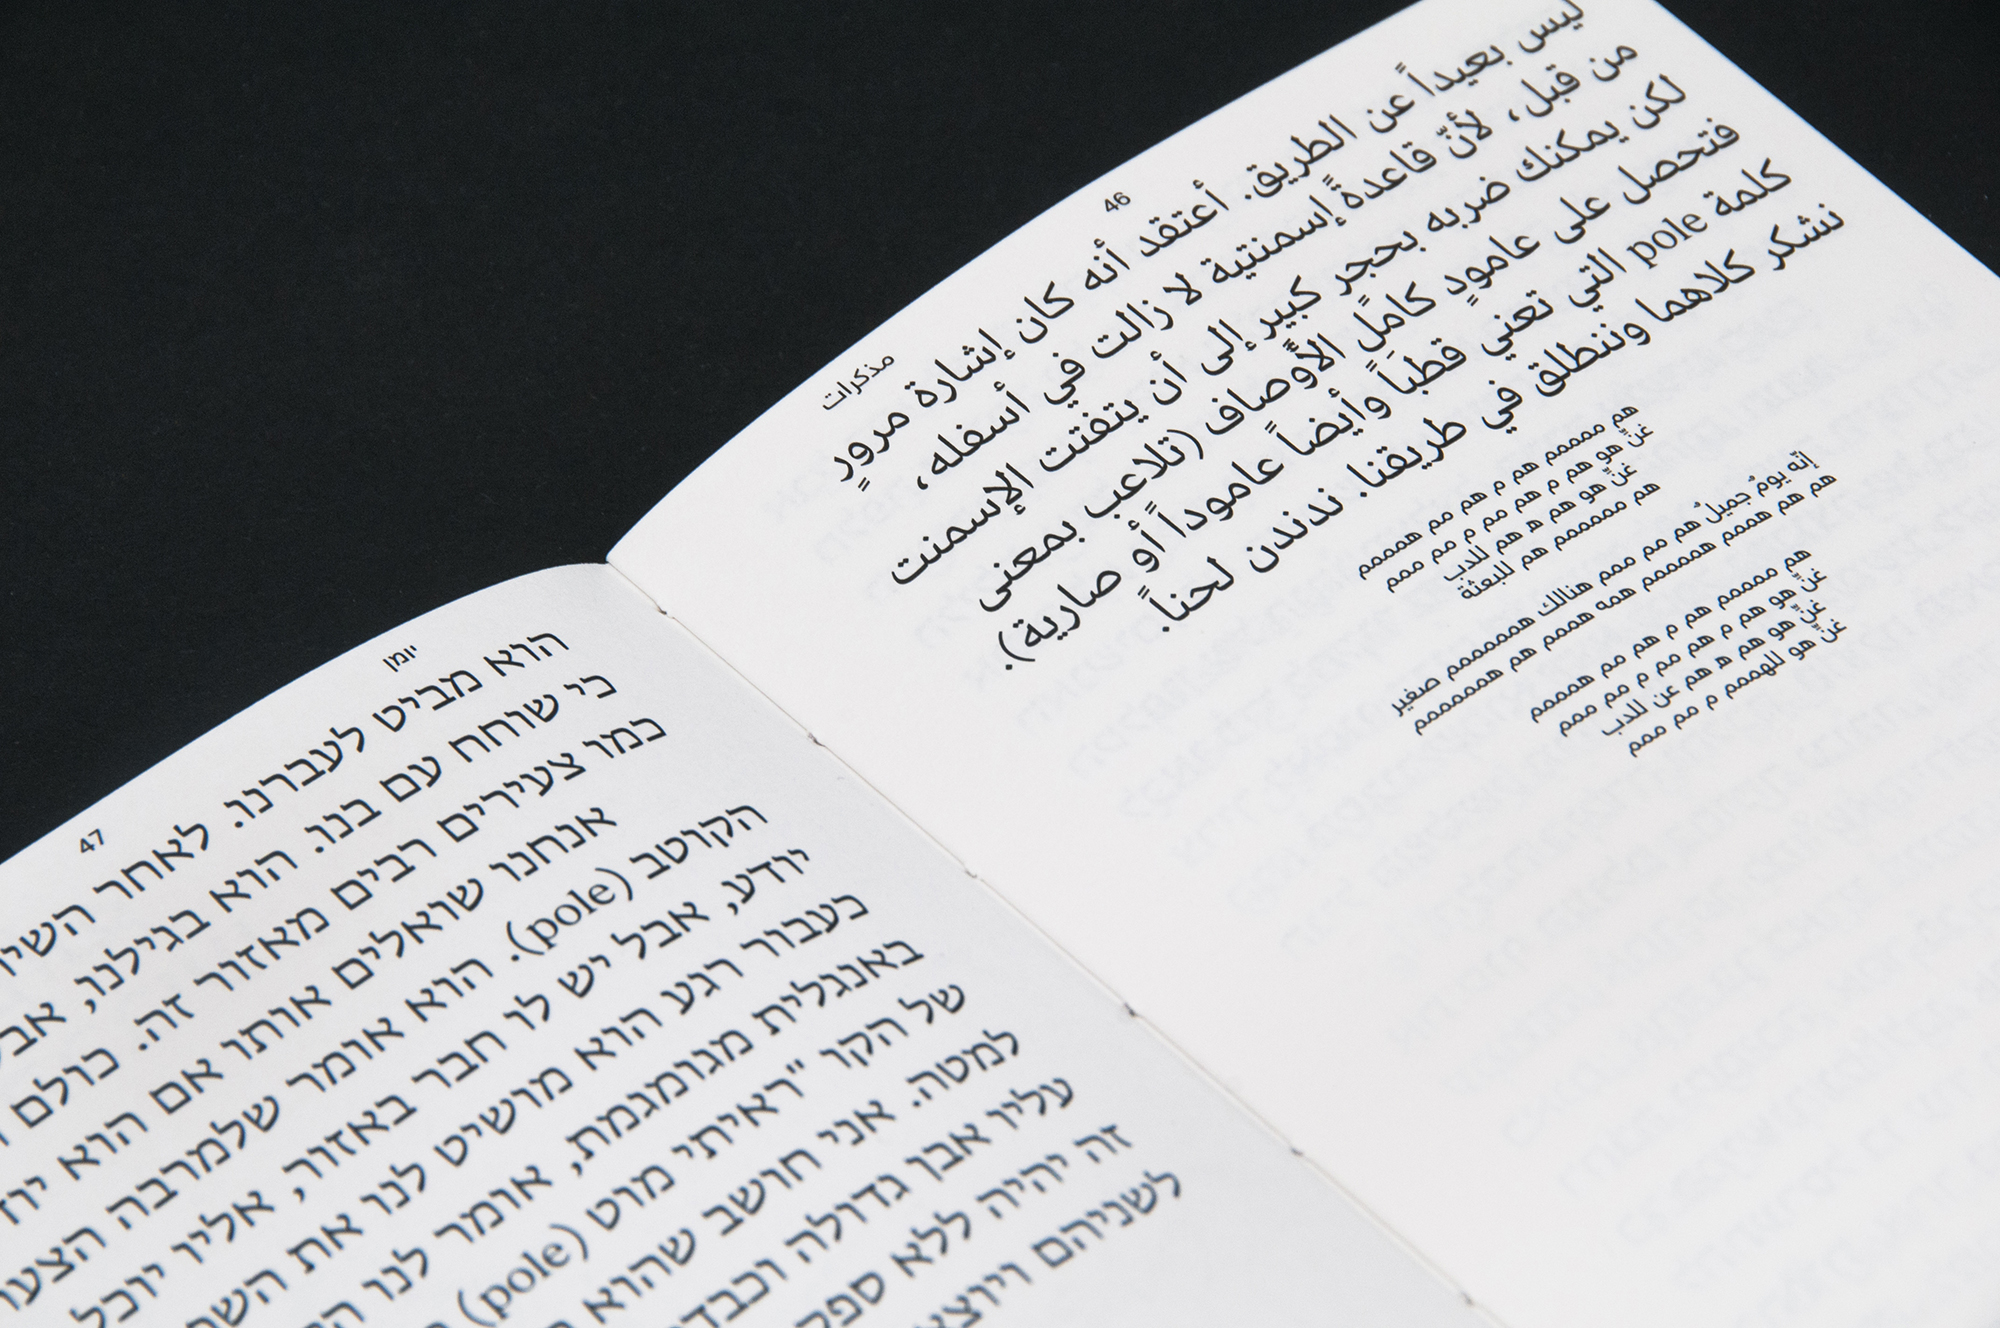 46
مذكرات
ليس بعيداً عن الطريق. أعتقد أنه كان إشارة مرورٍ
من قبل، لأنّ قاعدةً إسمنتية لا زالت في أسفله،
لكن يمكنك ضربه بحجر كبير إلى أن يتفتت الإسمنت
فتحصل على عامودٍ كاملِ الأوصاف (تلاعب بمعنى
كلمة pole التي تعني قطباً وأيضاً عاموداً أو صارية).
نشكر كلاهما وننطلق في طريقنا. ندندن لحناً.
هم مممممم هم م هم مم هممممم
غنِّ هو هم م هم مم م مم ممم
غنِّ هو هم ه هم للدب
هم ممممممم هم للبعثة
إنّه يومٌ جميلٌ هم مم ممم هنالك همممممم صغير
هم هم هممم همممممم همه هممم هم هممممممم
هم مممممم هم م هم مم هممممم
غنِّ هو هم م هم مم م مم ممم
غنِّ هو هم ه هم عن للدب
غنِّ هو للهممم م مم ممم
יומן
47
הוא מביט לעברנו. לאחר
כי שוחח עם בנו. הוא בגילנו,
כמו צעירים רבים מאזור זה. כולם
אנחנו שואלים אותו אם הוא
הקוטב (pole). הוא אומר שלמרבה
יודע, אבל יש לו חבר באזור, אליו יוכל
כעבור רגע הוא מושיט לנו את
באנגלית מגומגמת, אומר לנו
של הקו "ראיתי מוט (pole)
למטה. אני חושב שהוא
עליו אבן גדולה
זה יהיה ללא ספק
לשניהם